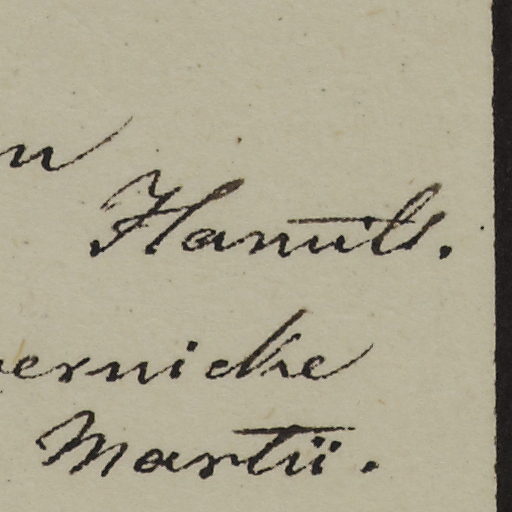 n
Hamilt.
ernicke
Martii.